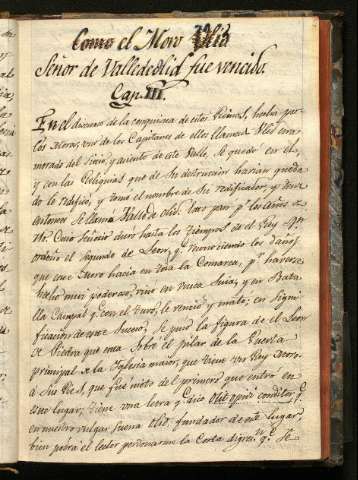 Como el Moro Olid
Señor de Valledeolid fue vencido.
Cap. III.
En el discurso de la conquista de estos Reinos, hecha por
los Moros, uno de los Capitanes de ellos llamado Olid ena-
morado del sitio, y asiento de este Valle, se quedó en el,
y con las Reliquias que de su destruccion havian queda
do le redificò, y tomó el nombre de su redificador, y
entonces se llamó Valle de Olid.
este Señorio duró hasta los tiempos de el Rey
el segundo de Leon, conociendo los daños
que este Moro hacia en toda la Comarca, haverse
hecho mui poderoso, vino en busca suya, y en Bata
lla Campal con el tuvo, le venció y mató; en signi
ficacion de este Suceso, se puso la figura de el Leon
de Piedra que esta sobre el pilar de la Puerta
principal de la Iglesia maior, que tiene un Rey Moro
a sus Pies, que fue mote del primero que entró en
este lugar, tiene una letra q.e dice Olit opidi conditor q.e
en nuestro vulgar suena Olid, fundador de este lugar,
bien podrá el lector perdonarme la Corta digres.n q.e he